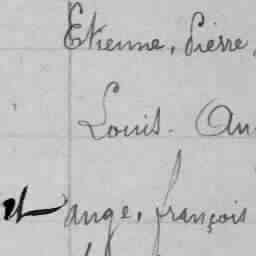 Etienne, Pierre,
Louis. An
ange, françois